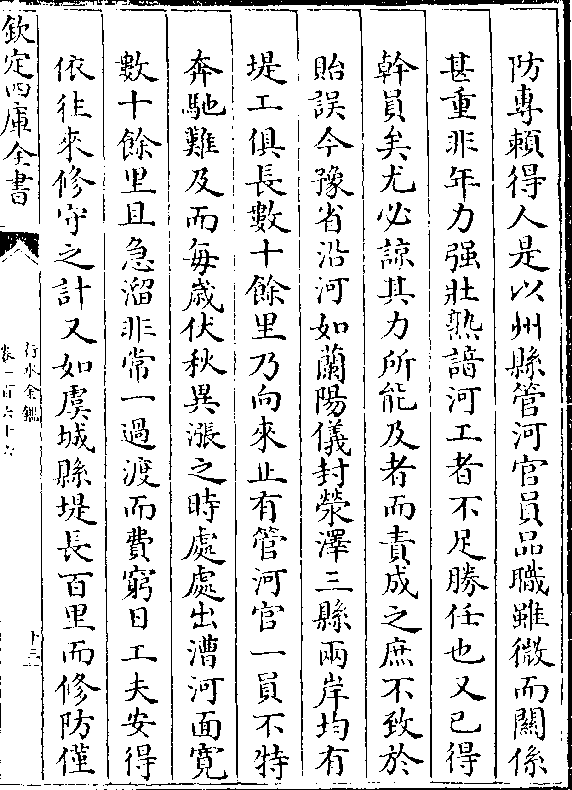 防專賴得人是以州縣管河官員品職雖微而關係
甚重非年力强壯熟諳河工者不足勝任也又已得
幹員矣尤必諒其力所能及者而責成之庶不致於
貽誤今豫省沿河如蘭陽儀封滎澤三縣兩岸均有
堤工俱長數十餘里乃向來止有管河官一員不特
奔馳難及而每歲伏秋異漲之時處處出漕河面寬
數十餘里且急溜非常一過渡而費窮日工夫安得
依往來修守之計又如虞城縣堤長百里而修防僅
欽定四庫全書
行水金鑑
卷一百六十六